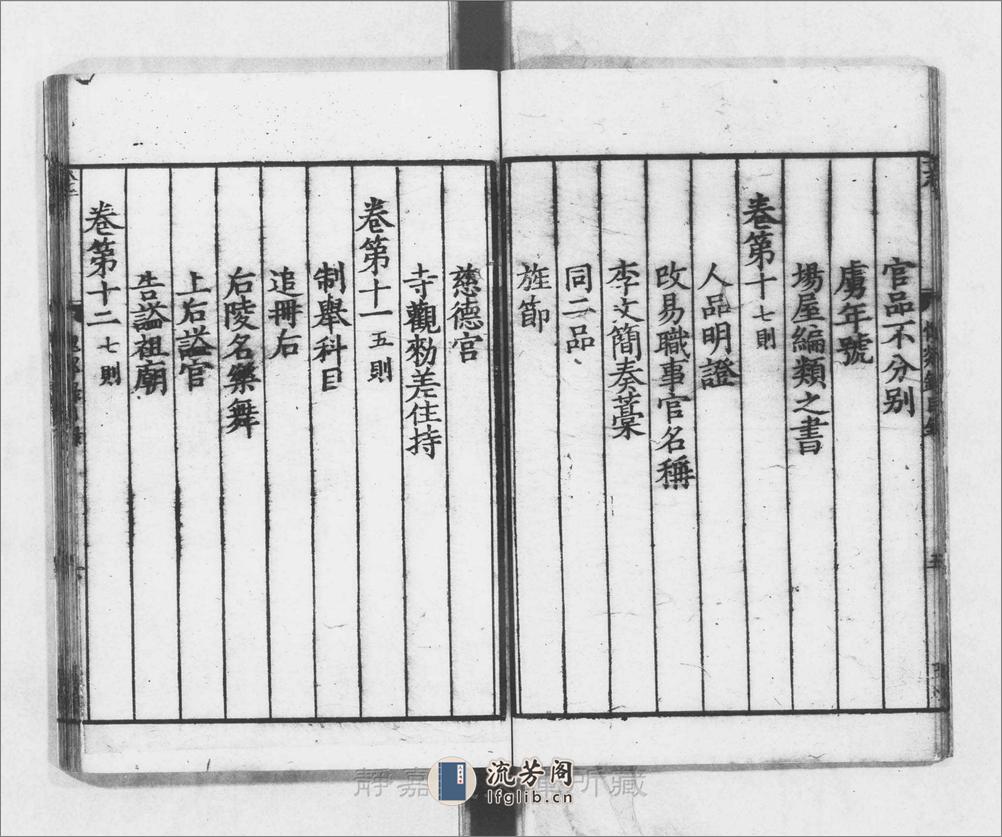 官品不分别
虜年號
場屋編類之書
卷第十 七則
人品明證
改易職事官名稱
李文簡奏藁
同二品
旌節
慈德宫
寺觀勑差住持
卷第十一 五則
制舉科目
追冊后
后陵名樂舞
上后謚官
告謚祖廟
卷第十二 七則
流芳阁
lfglib.cn